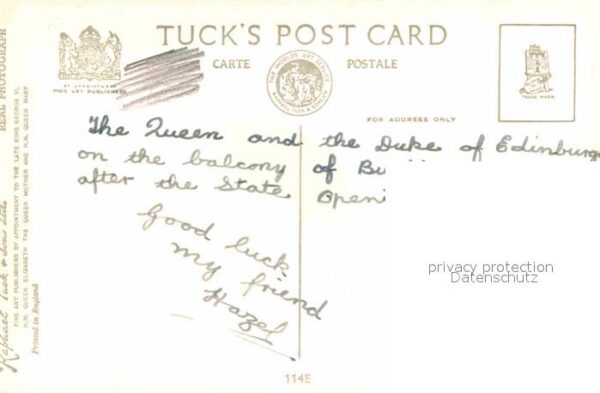 TUCK'S POST CARD
CARTE POSTALE
BY APPOINTMENT
FINE ART PUBLISHERS
THE WORLD'S ART SERVICE
RAPHAEL TUCK & SONS LTD
TRADE MARK
FOR ADDRESS ONLY
The Queen and the Duke of Edinburgh
on the balcony of Bu
after the State Openi
Good luck
my friend
Hazel
privacy protection
Datenschutz
114E
REAL PHOTOGRAPH
Raphael Tuck & Sons Ltd
FINE ART PUBLISHERS BY APPOINTMENT TO THE LATE KING GEORGE VI,
H.M. QUEEN ELIZABETH THE QUEEN MOTHER AND H.M. QUEEN MARY
Printed in England